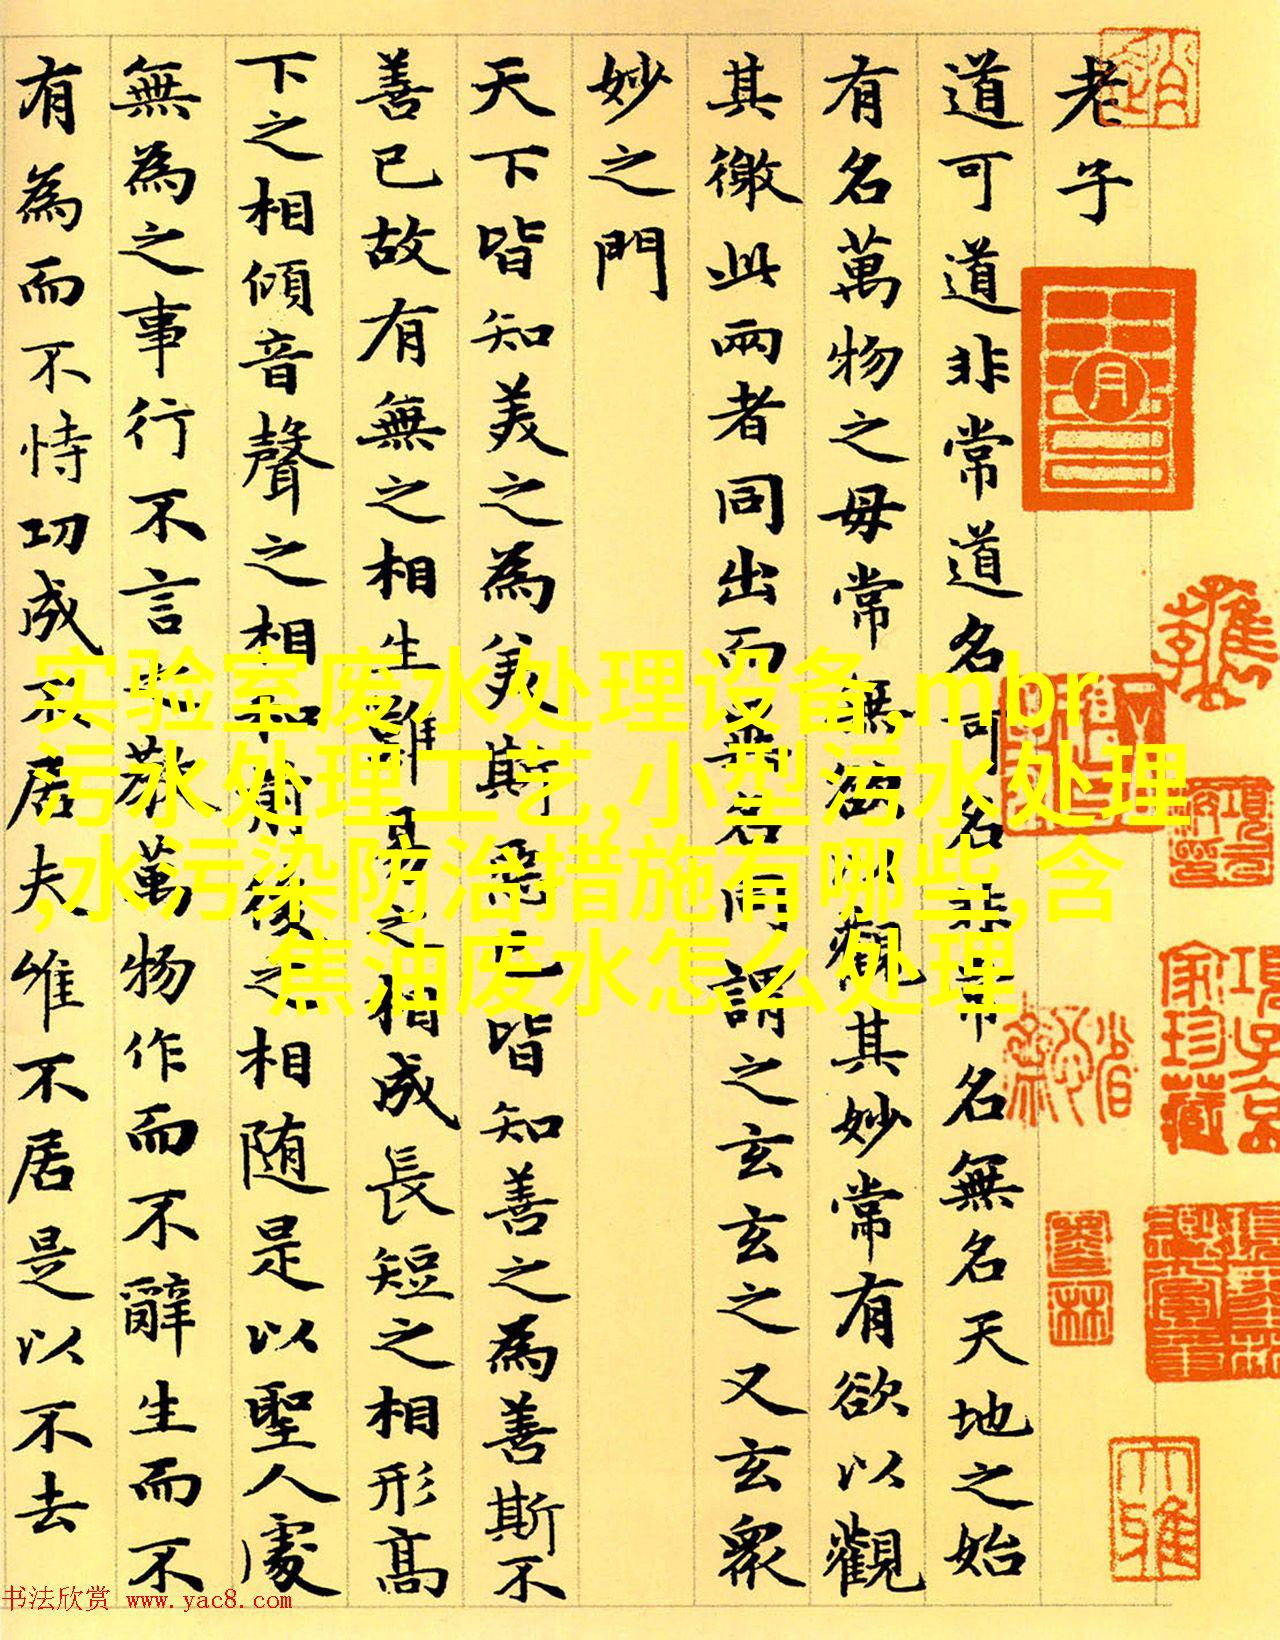 老子
道可道非常道名可名非常名無名天地之始
有名萬物之母常無欲以觀其妙常有欲以觀
其徼此兩者同出而異名同謂之玄玄之又玄衆
妙之門
天下皆知美之為美斯惡已皆知善之為善斯不
善已故有無之相生難易之相成長短之相形高
下之相傾音聲之相和前後之相隨是以聖人處
無為之事行不言之教萬物作而不辭生而不
有為而不恃功成不居夫惟不居是以不去
实验室废水处理设备,mbr
污水处理工艺,小型污水处理
,水污染防治措施有哪些,含
焦油废水怎么处理
书法欣赏 www.yac8.com